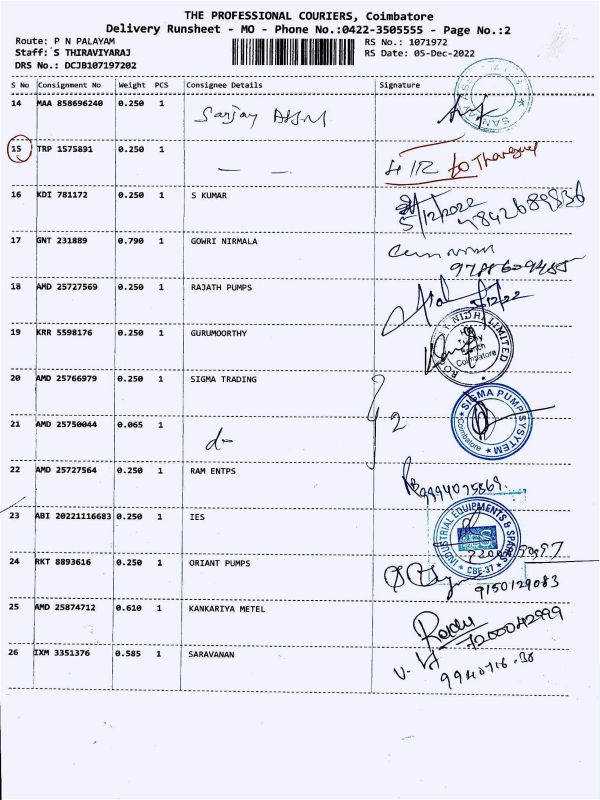 THE PROFESSIONAL COURIERS, Coimbatore
Delivery Runsheet - MO - Phone No.:0422-3505555 - Page No.:2
Route: P N PALAYAM RS No.: 1071972
Staff: S THIRAVIYARAJ RS Date: 05-Dec-2022
DRS No.: DCJB107197202
S No Consignment No Weight PCS Consignee Details Signature
14 MAA 858696240 0.250 1 Sanjay
15 TRP 1575891 0.250 1
16 KDI 781172 0.250 1 S KUMAR
5/12/2022 9842689836
17 GNT 231889 0.790 1 GOWRI NIRMALA
18 AMD 25727569 0.250 1 RAJATH PUMPS
19 KRR 5598176 0.250 1 GURUMOORTHY
NIDHI LIMITED
Branch
Coimbatore
20 AMD 25766979 0.250 1 SIGMA TRADING
SIGMA PUMP SYSTEM
Coimbatore
21 AMD 25750044 0.065 1 2
22 AMD 25727564 0.250 1 RAM ENTPS
9994075869
23 ABI 20221116683 0.250 1 IES
INDUSTRIAL EQUIPMENTS & SPARES
CBE-37
24 RKT 8893616 0.250 1 ORIANT PUMPS
9150129083
25 AMD 25874712 0.610 1 KANKARIYA METEL
26 IXM 3351376 0.585 1 SARAVANAN